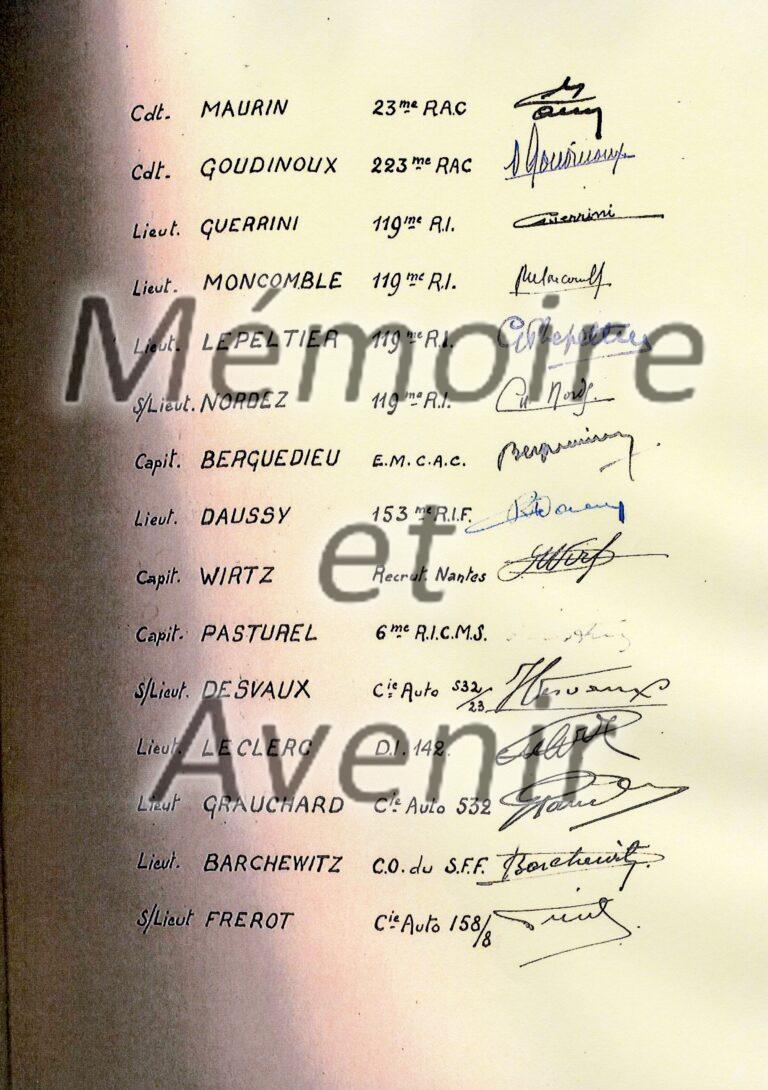 Cdt. MAURIN 23me RAC
Cdt. GOUDINOUX 223me RAC
Lieut. GUERRINI 119me R.I. Guerrini
Lieut. MONCOMBLE 119me R.I.
Mémoire
Lieut. LEPELTIER 119me R.I.
S/Lieut. NORDEZ 119me R.I.
Capit. BERGUEDIEU E.M.C.A.C.
Lieut. DAUSSY 153me R.I.F.
et
Capit. WIRTZ Recrut. Nantes
Capit. PASTUREL 6me R.I.C.M.S.
S/Lieut. DESVAUX Cie Auto 532/23
Avenir
Lieut. LECLERC D.I. 142
Lieut GRAUCHARD Cie Auto 532
Lieut. BARCHEWITZ C.O. du S.F.F. Barchewitz
S/Lieut FREROT Cie Auto 158/8